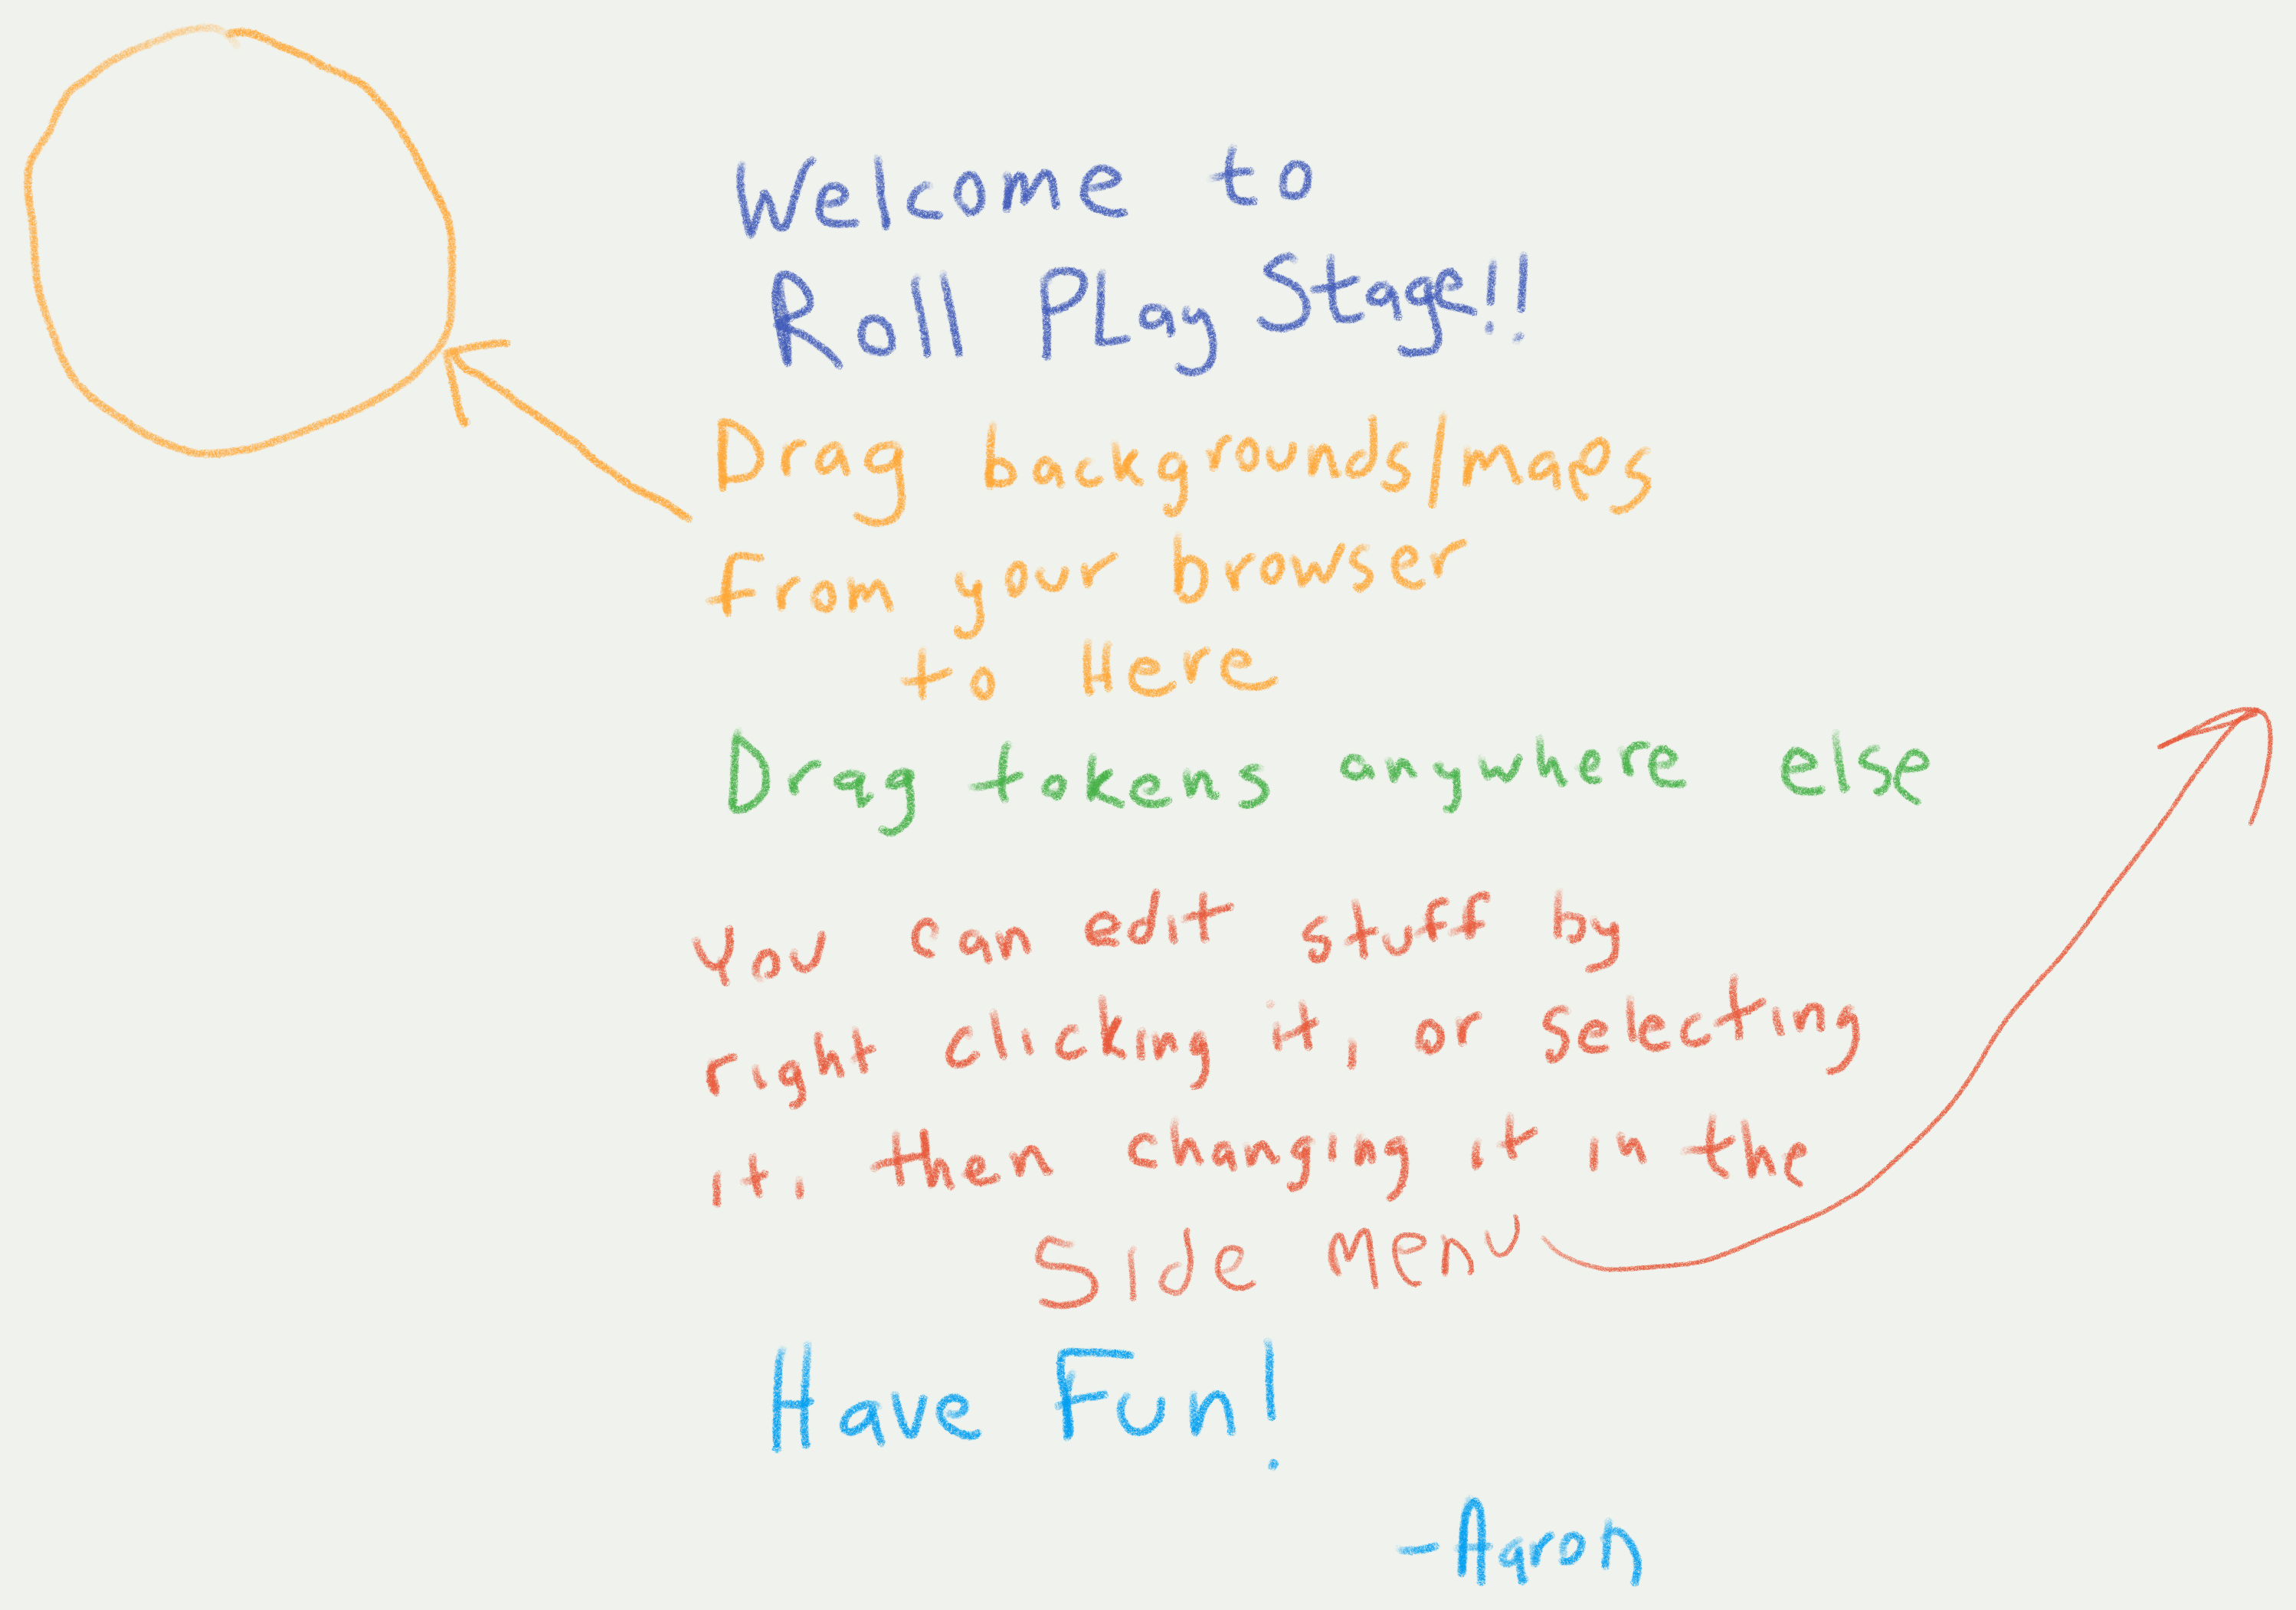 Welcome to
Roll PLay Stage!!
Drag backgrounds/maps
from your browser
to Here
Drag tokens anywhere else
You can edit stuff by
right clicking it, or selecting
it, then changing it in the
Side Menu
Have Fun!
-Aaron